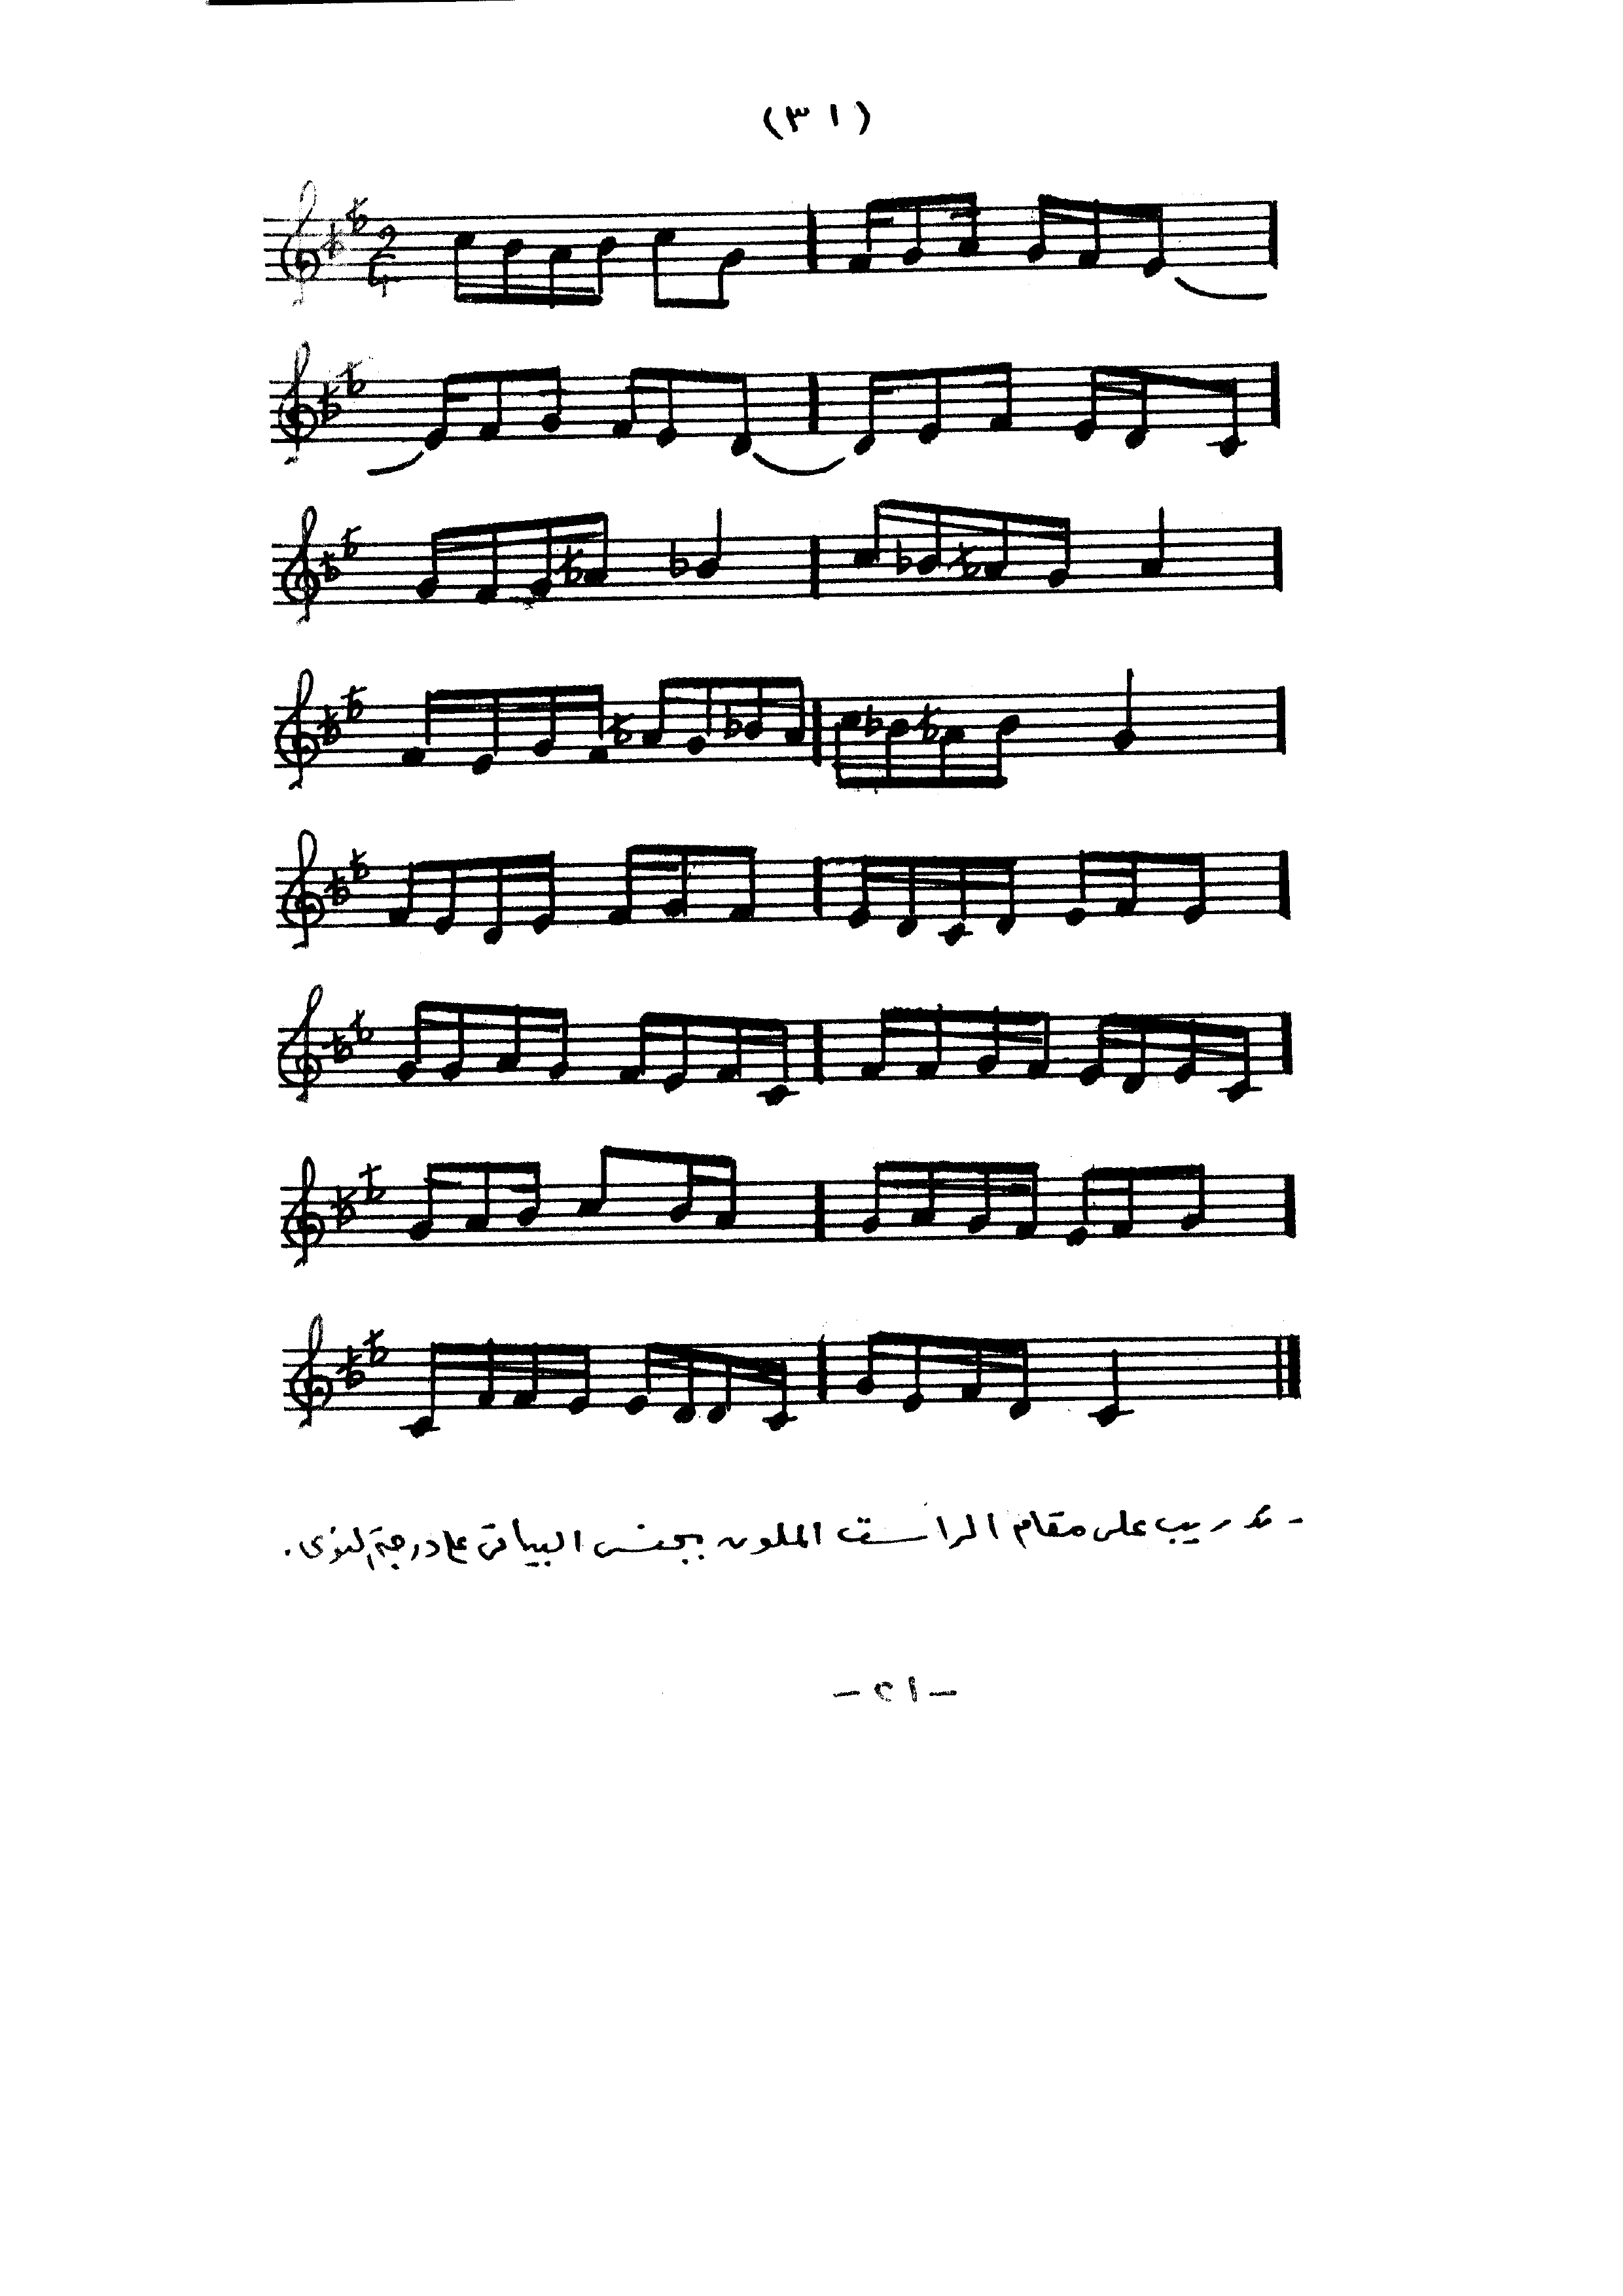 (٣١)
2
4
- تدريب على مقام الراست الملون بجنس البياتى على درجة النوى.
- ٢١ -